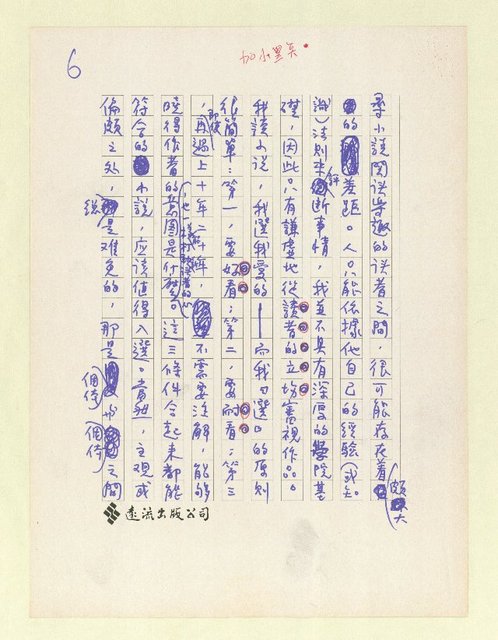 6
加小黑点。
尋小說閱讀樂趣的讀者之間，很可能存在着頗大
的差距。人只能依據他自己的經驗（或知
識）法則來斷事情，我並不具有深厚的學院基
礎，因此只有謙虛地從讀者的立場審視作品。
我讀小說，我選我愛的——而我選的原則
很簡單：第一，要好看；第二，要耐看；第三
，即使再過上十年二十年，不需要註解，能夠
曉得作者的意圖是什麼。這三條件合起來都能
符合的小說，應該值得入選。當然，主觀或
偏頗之處，總是難免的，那是個之間
遠流出版公司